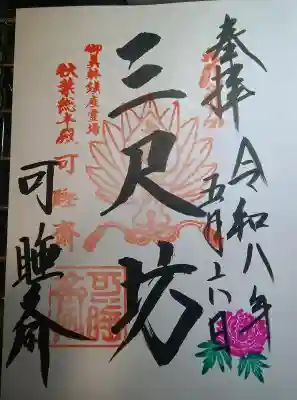 奉拝
令和八年
五月十八日
三尺坊
御真躰鎮座霊場
秋葉総本殿
可睡斎
可睡斎